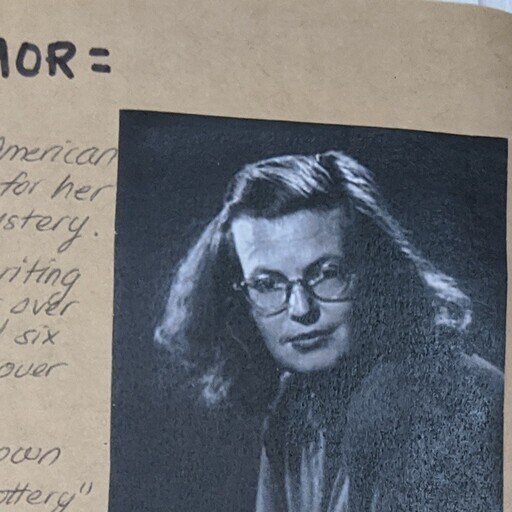 HOR =
American
for her
ystery.
writing
over
six
over
own
ottery"